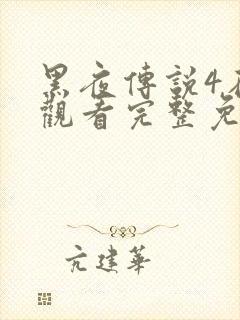 黑夜傳說4
觀看完整免
亢建華